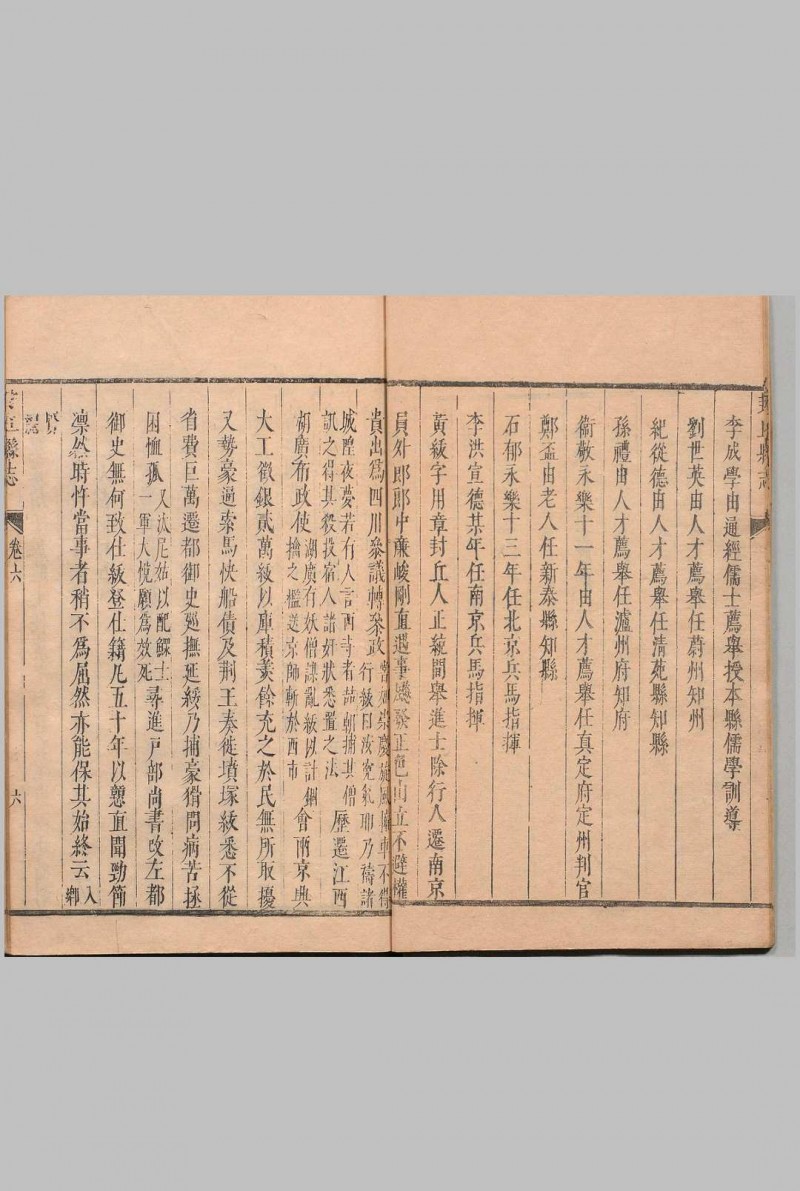 李成學由通經儒士薦舉授本縣儒學訓導
劉世英由人才薦舉任蔚州知州
紀從德由人才薦舉任清苑縣知縣
孫禮由人才薦舉任瀘州府知府
衞敬永樂十一年由人才薦舉任真定府定州判官
鄭盃由老人任新泰縣知縣
石郁永樂十三年任北京兵馬指揮
李洪宣德某年任南京兵馬指揮
黃紱字用章封丘人正統間舉進士除行人遷南京
員外郎郎中廉峻剛直遇事飈發正色山立不避權
貴出爲四川參議轉參政 嘗過崇慶旋風擁車不得
行紱曰汝寃氣耶乃禱諸
城隍夜夢若有人言西寺者詰朝捕其僧
訊之得其殺投宿人諸奸狀悉置之法 歷遷江西
湖廣布政使 湖廣有妖僧謀亂紱以計錮
擒之檻送京師斬於西市 會兩京興
大工徵銀貳萬紱以庫積羨餘充之於民無所取擾
又勢豪逼索馬快船債及荆王奏徙墳塚紱悉不從
省費巨萬遷都御史廵撫延綏乃捕豪猾問病苦拯
困恤孤 又汰尼姑以配鰥士
一軍大悅願爲效死 尋進戸部尚書改左都
御史無何致仕紱登仕籍凡五十年以戇直聞勁節
凛然時忤當事者稍不爲屈然亦能保其始終云 入
鄉
賢
卷六
六